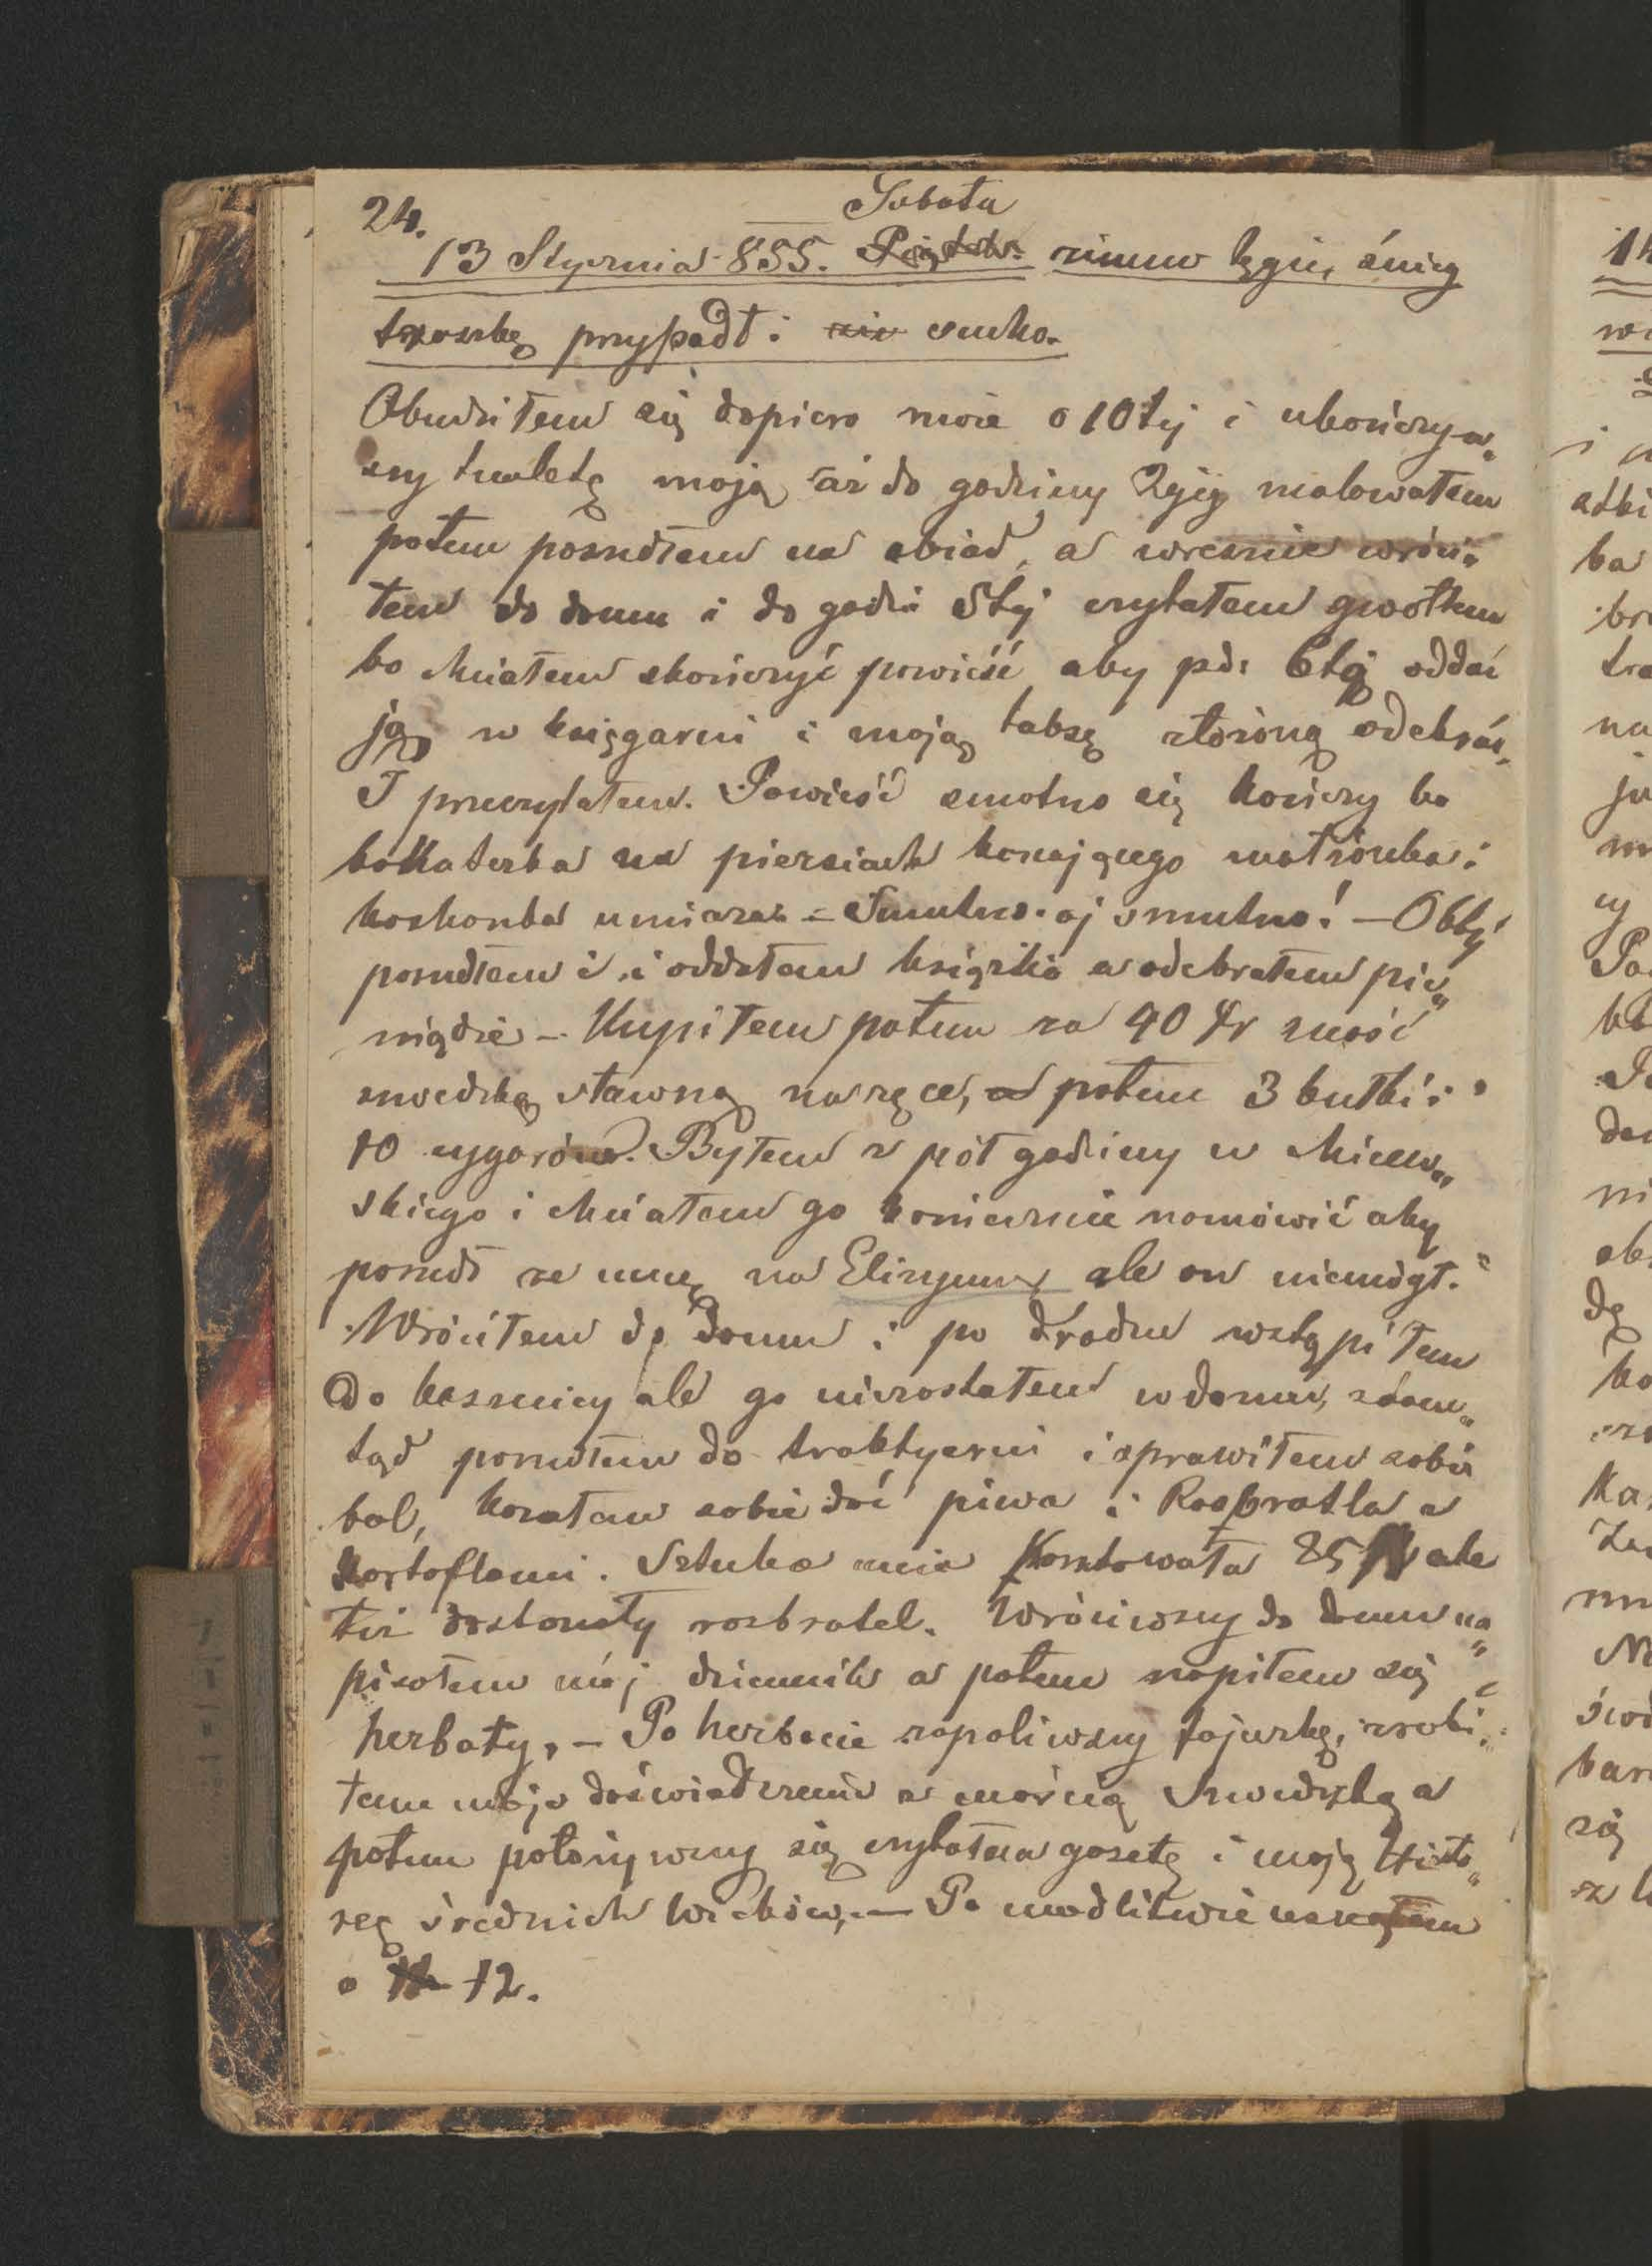 24.
Sobota
13 Stycznia 855. Piątek. zimno tęgie, śnieg
troszkę przypadł i nie sucho.
Obudziłem się dopiero może o 10tej i ukończyw„
szy tualetę moją aż do godziny 2giej malowałem
potem poszedłem na obiad, a wreszcie wróci„
łem do domu i do godzi 5tej czytałem gwołtem
bo chciałem skończyć powieść aby pd: 6tą oddać
ją w księgarni i moją tabsę złożoną odebrać.
I przeczytałem. Powieść smotno się kończy bo
bohaterka na piersiach konającego małżonka i
kochonka umiera. – Smutno. oj smutno! – O 6tej
poszedłem i i oddałem książkie a odebrałem pie„
niądze – Kupiłem potem za 40 Xr maść
szwedzką sławną na ręce, a potem 3 bułki i
10 cygarów. Byłem z pół godziny u
skiego i chciałem go koniecznie nomówić aby
poszedł ze mną na Elizyum ale on niemógł.
Wróciłem do domu i po drodze wstąpiłem
Do kasznicy ale go niezostałem w domu, ztam„
tąd poszedłem do traktyerni i sprawiłem sobie
bal, kozałem sobie dać piwa i Rozbratla z
kortoflami. Sztuka mie kosztowała 25 Xr ale
też doskonały rozbratel. Wróciwszy do domu na„
pisołem mój dziennik a potem nopiłem się
herbaty, – Po herbacie zapoliwszy fajeczkę, zrobi„
łem moje doświadczenie z maścią Szwedzką a
potem położywszy się czytałem gazetę i moją Histo„
ręę średnich Wieków, – Po modlitwie usnąłem
o 11 12.